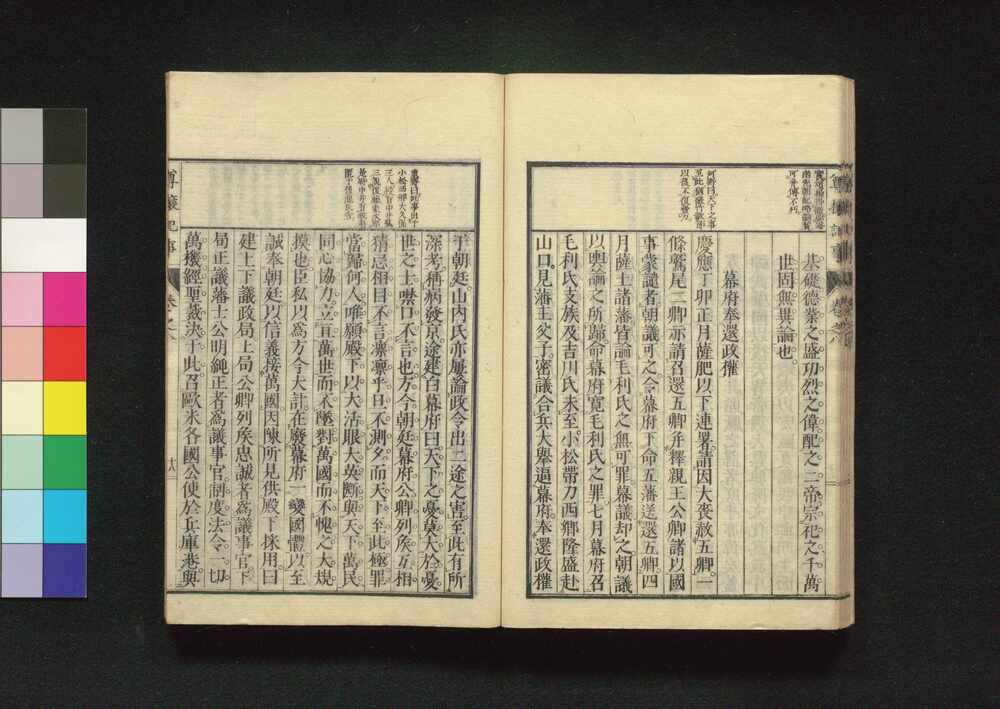 基礎德業之盛功烈之偉配之二帝宗祀之千萬
世固無異論也
幕府奉還政權
慶應丁卯正月薩肥以下連署請因大喪赦五卿二
條鷲尾二卿亦請召還五卿并釋親王公卿諸以國
事蒙譴者朝議可之令幕府下命五藩送還五卿四
月薩土諸藩皆論毛利氏之無可罪幕議却之朝議
以輿論之所歸命幕府寬毛利氏之罪七月幕府召
毛利氏支族及吉川氏未至小松帶刀西鄉隆盛赴
山口見藩王父子密議合兵大舉逼幕府奉還政權
于朝廷山內氏亦屢論政令出二途之害至此有所
深考稱病發京途建白幕府曰天下之憂莫大於憂
世之士噤口不言也方今朝廷幕府公卿列矦互相
猜忌相目不言凛凛乎日不測夕而天下至此極罪
當歸何人唯願殿下以大活眼大英斷與天下萬民
同心協力立亘萬世而不墜對萬國而不愧之大規
模也臣私以爲方今大計在廢幕府一變國體以至
誠奉朝廷以信義接萬國因陳所見供殿下採用曰
建上下議政局上局公卿列矦忠誠者爲議事官下
局正議藩士公明純正者爲議事官制度法令一切
萬機經聖裁決于此召歐米各國公使於兵庫港與
尊攘紀事
卷之八